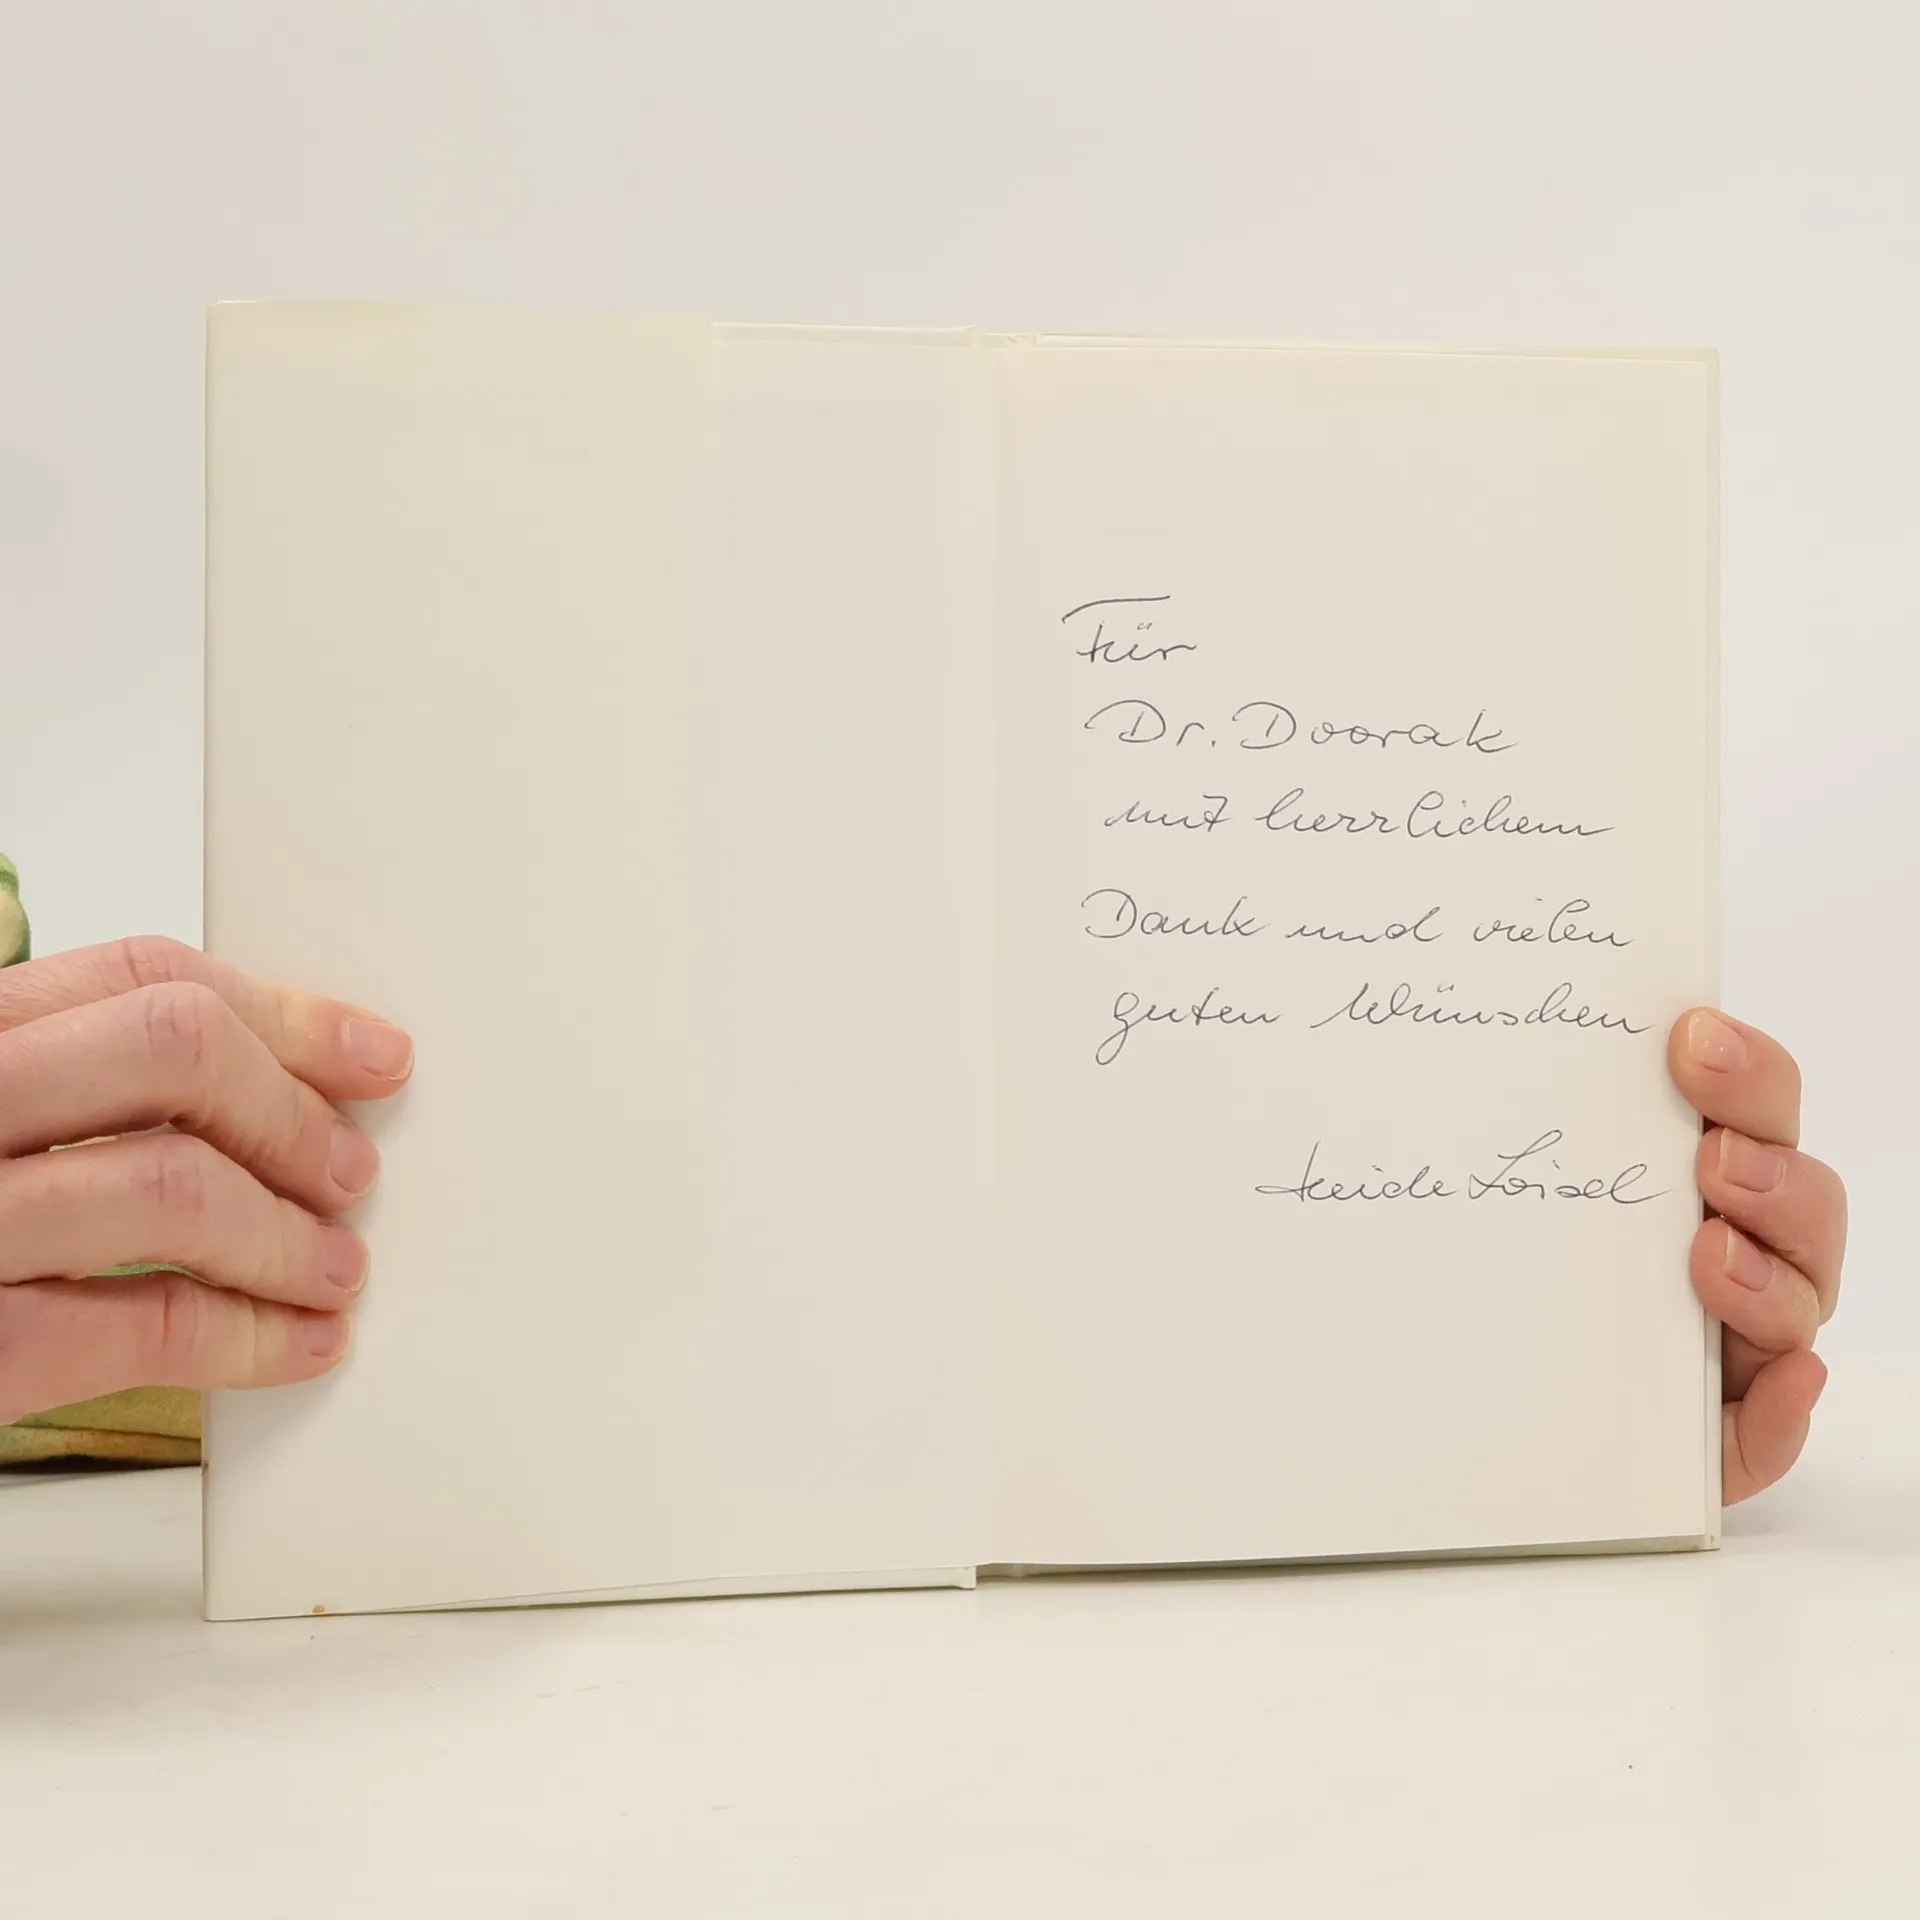 Für
Dr. Dvorak
mit herzlichem
Dank und vielen
guten Wünschen
Heide Loisel